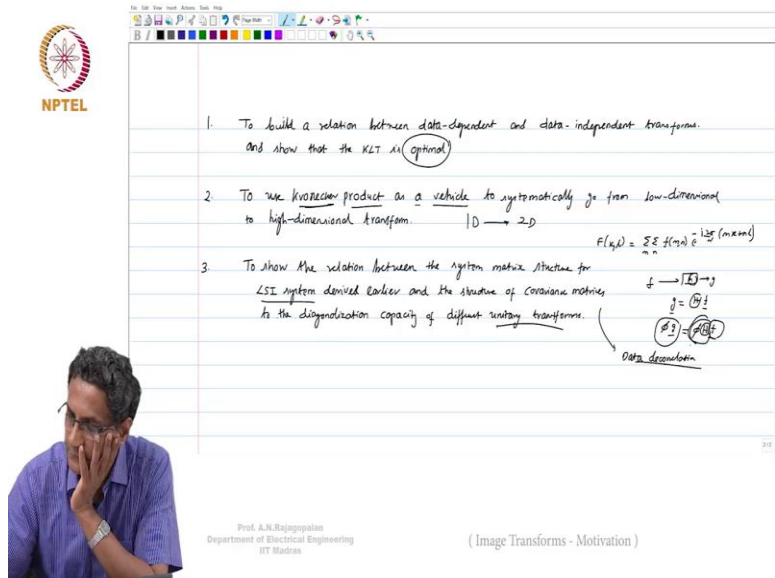 File Edit View Insert Actions Tools Help
Page Width
B I
NPTEL
1. To build a relation between data-dependent and data-independent transforms.
and show that the KLT is optimal
2. To use kronecker product as a vehicle to systematically go from low-dimensional
to high-dimensional transform. 1D → 2D
F(k,l) = Σ Σ f(m,n) e
m n
3. To show the relation between the system matrix structure for
LSI system derived earlier and the structure of covariance matrices
to the diagonalization capacity of different unitary transforms.
f → h → g
g = H f
φ g = φ H f
Data decorrelation
2/2
Prof. A.N.Rajagopalan
Department of Electrical Engineering
IIT Madras
( Image Transforms - Motivation )